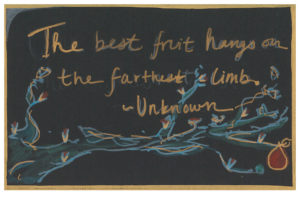 The best fruit hangs on
the farthest climb.
~Unknown